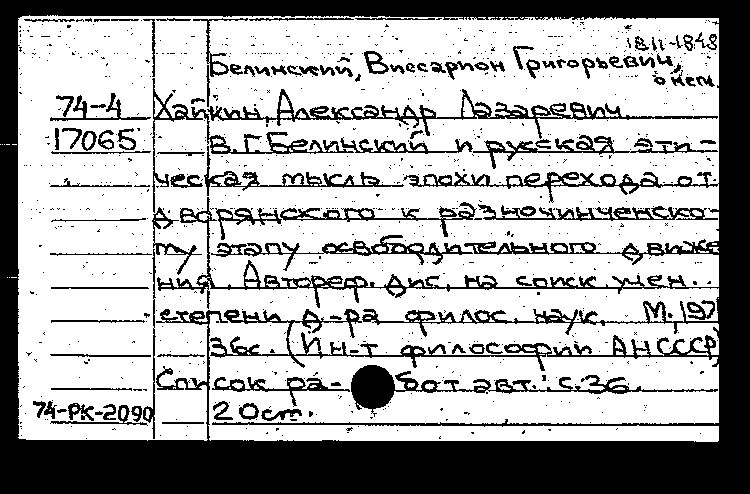 1811-1848
Белинский, Виссарион Григорьевич,
о нем.
74-4 Хайкин, Александр Лазаревич.
17065 В. Г. Белинский и русская эти-
ческая мысль эпохи перехода от
дворянского к разночинченско-
му этапу освободительного движе
ния. Автореф. дис. на соиск. учен.
степени д-ра филос. наук. М., 197
36с. (Ин-т философии АН СССР)
Список ра- бот авт.: с.36.
74-РК-2090 2 Ост.